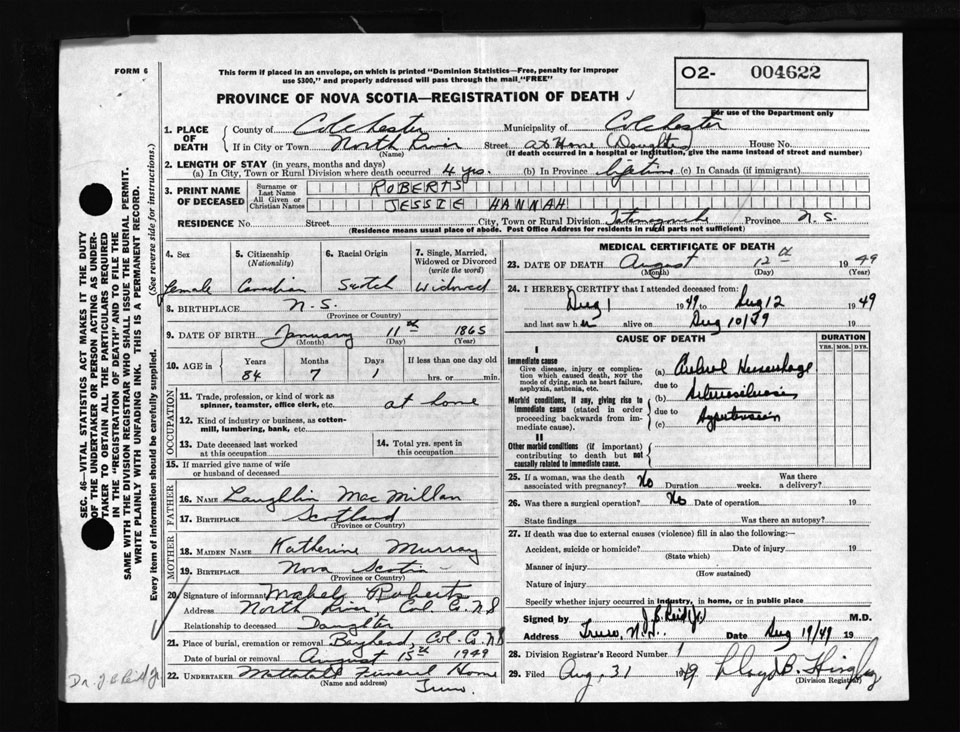 FORM 6
This form if placed in an envelope, on which is printed "Dominion Statistics—Free, penalty for improper
use $300," and properly addressed will pass through the mail "FREE"
O2- 004622
For use of the Department only
PROVINCE OF NOVA SCOTIA—REGISTRATION OF DEATH
1. PLACE OF DEATH
County of Colchester Municipality of Colchester
If in City or Town North River Street at Home (Daughter House No.
(Name) (If death occurred in a hospital or institution, give the name instead of street and number)
2. LENGTH OF STAY (in years, months and days)
(a) In City, Town or Rural Division where death occurred 4 yrs. (b) In Province lifetime (c) In Canada (if immigrant)
3. PRINT NAME OF DECEASED
Surname or Last Name ROBERTS
All Given or Christian Names JESSIE HANNAH
RESIDENCE No. Street City, Town or Rural Division Tatamagouche Province N.S.
(Residence means usual place of abode. Post Office Address for residents in rural parts not sufficient)
4. Sex Female
5. Citizenship (Nationality) Canadian
6. Racial Origin Scotch
7. Single, Married, Widowed or Divorced (write the word) Widowed
8. BIRTHPLACE N.S.
(Province or Country)
9. DATE OF BIRTH January 11th 1865
(Month) (Day) (Year)
10. AGE in Years Months Days If less than one day old
84 7 1 hrs. or min.
OCCUPATION
11. Trade, profession or kind of work as spinner, teamster, office clerk, etc. at home
12. Kind of industry or business, as cotton-mill, lumbering, bank, etc.
13. Date deceased last worked at this occupation
14. Total yrs. spent in this occupation
15. If married give name of wife or husband of deceased
FATHER
16. NAME Laughlin MacMillan
17. BIRTHPLACE Scotland
(Province or Country)
MOTHER
18. MAIDEN NAME Katherine Murray
19. BIRTHPLACE Nova Scotia
(Province or Country)
20. Signature of informant Mabel Roberts
Address North River, Col. Co. N.S
Relationship to deceased Daughter
21. Place of burial, cremation or removal Bayhead, Col. Co. N.S
Date of burial or removal August 15th 1949
22. UNDERTAKER Mattatall Funeral Home
(Name and address) Truro.
MEDICAL CERTIFICATE OF DEATH
23. DATE OF DEATH August 12th 1949
(Month) (Day) (Year)
24. I HEREBY CERTIFY that I attended deceased from:
Aug 1 1949 to Aug 12 1949
and last saw her alive on Aug 10/49 19
CAUSE OF DEATH
DURATION
YRS. MOS. DYS.
I
Immediate cause
Give disease, injury or complication which caused death, not the mode of dying, such as heart failure, asphyxia, asthenia, etc.
(a) Cerebral Hemorrhage
due to
Morbid conditions, if any, giving rise to immediate cause (stated in order proceeding backwards from immediate cause).
(b) Arteriosclerosis
due to
(c) Hypertension
II
Other morbid conditions (if important) contributing to death but not causally related to immediate cause.
25. If a woman, was the death associated with pregnancy? No Duration weeks. Was there a delivery?
26. Was there a surgical operation? No Date of operation 19
State findings Was there an autopsy?
27. If death was due to external causes (violence) fill in also the following:—
Accident, suicide or homicide? Date of injury 19
(State which)
Manner of injury
(How sustained)
Nature of injury
Specify whether injury occurred in industry, in home, or in public place
Signed by J.B. Reid Jr M.D.
Address Truro, N.S. Date Aug 19/49 19
28. Division Registrar's Record Number 1
29. Filed Aug, 31 1949 Lloyd B.
(Division Registrar)
SEC. 46—VITAL STATISTICS ACT MAKES IT THE DUTY
OF THE UNDERTAKER OR PERSON ACTING AS UNDER-
TAKER TO OBTAIN ALL THE PARTICULARS REQUIRED
IN THE "REGISTRATION OF DEATH" AND TO FILE THE
SAME WITH THE DIVISION REGISTRAR WHO SHALL ISSUE THE BURIAL PERMIT.
WRITE PLAINLY WITH UNFADING INK. THIS IS A PERMANENT RECORD.
Every item of information should be carefully supplied. (See reverse side for instructions.)
Dr. J B Reid Jr.